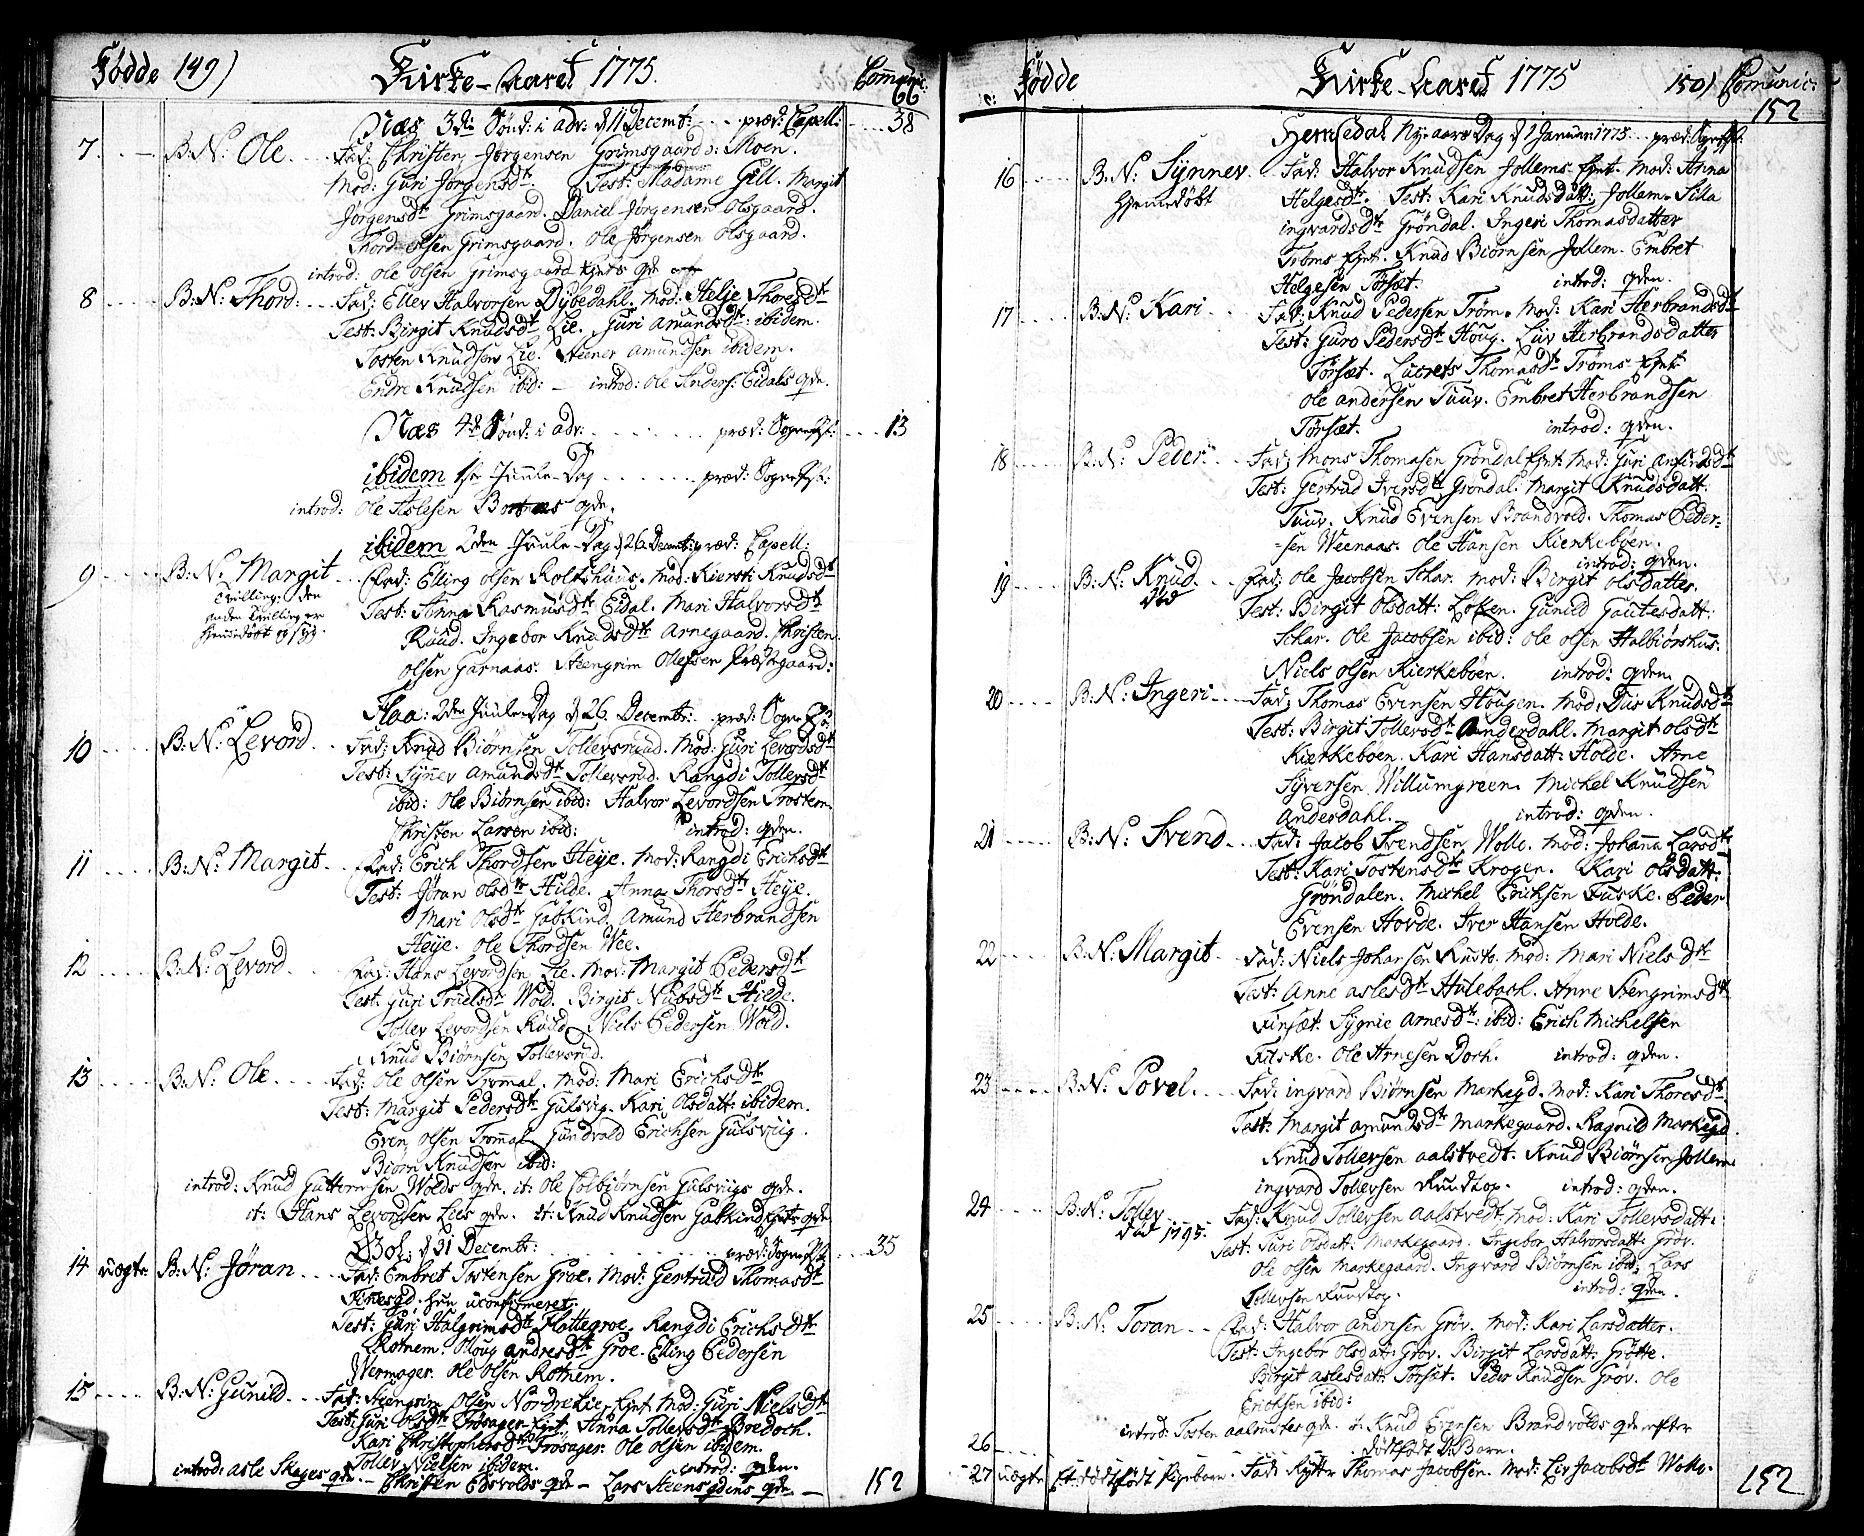 Fødde 149) Kirke-Aaret 1775. Comunic:
66
Næs 3die Sønd: i adv: d 11 Decembr: præd: Capell: 38
7. B:N: Ole. Fad: Christen Jørgensen Grimsgaard Moen.
Mod: Guri Jørgensdtr Test: Madame Gill. Margit
Jørgensdtr Grimsgaard. Daniel Jørgensen Olsgaard.
Thord olsen Grimsgaard. Ole Jørgensen Olsgaard.
introd: ole olsen Grimsgaard qde
8 B:N: Thord: Fad: Ellev Halvorsen Dybedahl. Mod: Helje Thoresdtr
Test: Birgit Knudsdtr Lie. Guri Amundsdtr: ibidem.
Tosten Knudsen Lie. Steener amundsen ibidem.
Endre Knudsen ibid: introd: ole Anders: Eidals qde.
Næs 4de Sønd: i adv: præd: Sognepst: 13
ibidem 1ste Juule-Dag præd: Sognepst:
introd: Ole Aslesen qde.
ibidem 2den Juule-Dag d 26 Decembr: præd: Capell:
9 B:N: Margit Fad: Elling olsen Rolfshuus. Mod: Kiersti Knudsdtr
Tvilling: den
anden Tvilling er
hjemmedøbt
Test: Anna Rasmusdtr Eidal. Mari Halvorsdtr
Ruud. Ingebor Knudsdtr Arnegaard. Christen
olsen Garnaas. Steengrim Olsen Præstgaard:
Flaa: 2den Juule-Dag d 26. Decembr: præd: Sogne
10 B:N: Levord Fad: Knud Biørnsen Tollevsruud. Mod: Guri Levordsdtr
Test: Synnev Amundsdtr Tollevsrud. Rangdi Tollevsdtr
ibid: Ole Biørnsen ibid: Halvor Levordsen Trostem.
Christen Larsen ibid: introd: qden.
11 B:N: Margit Fad: Erich Thordsen Heije. Mod: Rangdi Erichsdtr
Test: Jøran olsdtr Hilde. Anna Thorsdtr Heije.
Mari Olsdtr Gabkind. Amund Herbrandsen
Heije. Ole Thordsen Wee.
12 B:N: Levord Fad: Hans Levordsen Lie. Mod: Margit Pedersdtr
Test: Guri Truelsdtr Wold. Birgit Nubsdtr Hilde.
Tollev Levordsen Ruud Niels Pedersen Wold.
Knud Biørnsen Tollevsrud.
13 B:N: Ole Fad: Ole olsen Trommal. Mod: Mari Erichsdtr
Test: Margit Pedersdtr Gulsvig. Kari Olsdatt: ibidem.
Even olsen Trommal Gundvold Erichsen Gulsviig.
Biørn Knudsen ibid:
introd: Knud Guttormsen Wolds qde. it: Ole Colbiørnsen Gulsviigs qde.
it: Hans Levordsen Lies qde. it: Knud Knudsen Gabkind qde
d 31 Decembr: præd: Sognepst: 35
14 uægte B:N: Jøran Fad: Embret Tostensen Groe. Mod: Gertrud Thomasdtr
hun uconfirmeret.
Test: Guri Halgrimsdtr Flattegroe. Rangdi Erichsdtr
Rotnem. Oloug Andresdtr Groe. Elling Pedersen
Wermager. Ole olsen Rotnem.
15 B:N: Gunild Fad: Steengrim Olsen Nordrekier. Mod: Guri Nielsdtr
Test: Guri Olsdtr Trøsager. Anna Tollevsdtr Bredoch.
Kari Christophersdtr Trøsager. Ole olsen ibidem.
Tollev Nielsen ibidem. introd: qden.
introd: asle Skages qde. Christen Eds volds qde Lars Steens qde 152
Fødde Kirke-Aaret 1775 150) Comunic:
152
Hemsedal Nyeaars Dag d 1 Januari 1775 præd: Capell:
16 B:N: Synnev. Fad: Halvor Knudsen Jollems. Mod: Anna
Hjemmedøbt Helgesdtr. Test: Kari Knudsdatt: Jollem. Sila
ingvardsdtr Grøndal. Ingeri Thomasdatter
Trøms. Knud Biørnsen Jollem. Embret
Helgesen Torset. introd: qden.
17 B:N: Kari Fad: Knud Pedersen Trøm. Mod: Kari Herbrandsdtr
Test: Guro Pedersdtr Houg. Liv Herbrandsdatter
Torset. Lucrets Thomasdtr Trøms
Ole andersen Tuuv. Embret Herbrandsen
Torset. introd: qden.
18 B:N: Peder Fad: Mons Thomasen Grøndal Mod: Guri Anfindsdtr
Test: Gertrud Iversdtr Grøndal. Margit Knudsdatt:
Tuuv. Knud Evensen Brandvold. Thomas Peder-
-sen Weenaas. Ole Hansen Kierkeboen.
introd: qden.
19 B:N: Knud. Fad: Ole Jacobsen Skar. Mod: Birgit Olsdatter.
død Test: Birgit Olsdatt: Løkken. Gunild Gautesdatt:
Skar. Ole Jacobsen ibid: Ole olsen Halbiørshus.
Niels Olsen Kierkeboen. introd: qden.
20 B:N: Ingeri Fad: Thomas Evensen Hougen. Mod: Dus Knudsdtr
Test: Birgit Tollevsdtr Anderdahl. Margit olsdtr
Kierkeboen. Kari Hansdatt: Holde. Arne
Syversen Willumgreen. Michel Knudsen
Anderdahl. introd: qden.
21 B:N: Svend Fad: Jacob Svendsen Wolle. Mod: Johanna Larsdtr
Test: Kari Tostensdtr Krogen. Kari Olsdatt:
Grøndalen. Michel Erichsen Fuske. Peder
Evensen Hovde. Iver Hansen Holde.
22 B:N: Margit Fad: Niels Johansen Rusto, Mod: Mari Nielsdtr
Test: Anne Aslesdtr Hulebach. Anne Stengrimsdtr
Finset. Sygnie Arnesdtr: ibid: Erich Michelsen
Fuske. Ole Arnesen Doch. introd: qden.
23 B:N: Povel. Fad: ingvard Biørnsen Markegd. Mod: Kari Thoresdtr
Test: Margit amundsdtr Markegaard. Ragnild Markegd
Knud Tollevsen Aalstvedt. Knud Biørnsen Jollem
ingvard Tollevsen Ruudtop. introd: qden.
24 B:N: Tollev Fad: Knud Tollevsen Aalstvedt, Mod: Kari Tollevsdatt:
død 1795. Test: Turi Olsdatt: Markegaard. Ingebor Halvorsdatt: Grøv.
Ole olsen Markegaard. Ingvard Biørnsen ibid: Lars
Tollevsen Ruudtop. introd: qden.
25 B:N: Toran Fad: Halvor Andrisen Grøv. Mod: Kari Larsdatter.
Test: Ingebor Olsdatt: Grøv. Birgit Larsdatt: Grøtte.
Birgit Aslesdatt: Torset. Peder Knudsen Grøv. Ole
Erichsen ibid:
introd: Tosten qde. it. Knud Evensen Brandvolds qde efter
26 dødfødt Barn.
27 uægte Et dødfødt Pigebarn. Fad: Rytter Thomas Jacobsen. Mod: Liv Jacobsdtr Wolle. 152